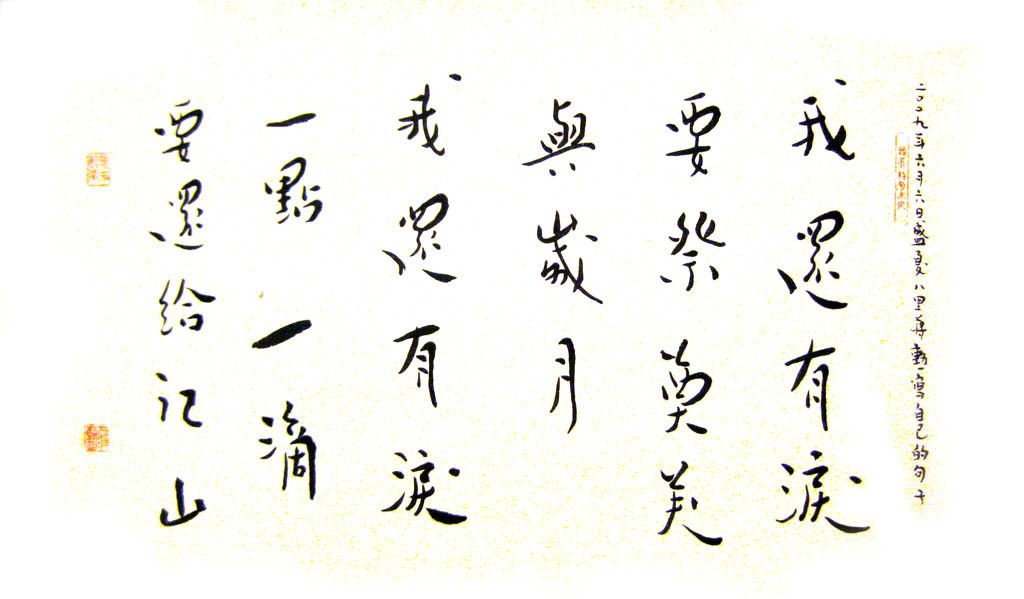 二〇〇九年六月六日盛夏八里蔣勳寫自己的句子
我還有淚
要祭奠美
與歲月
我還有淚
一點一滴
要還給江山